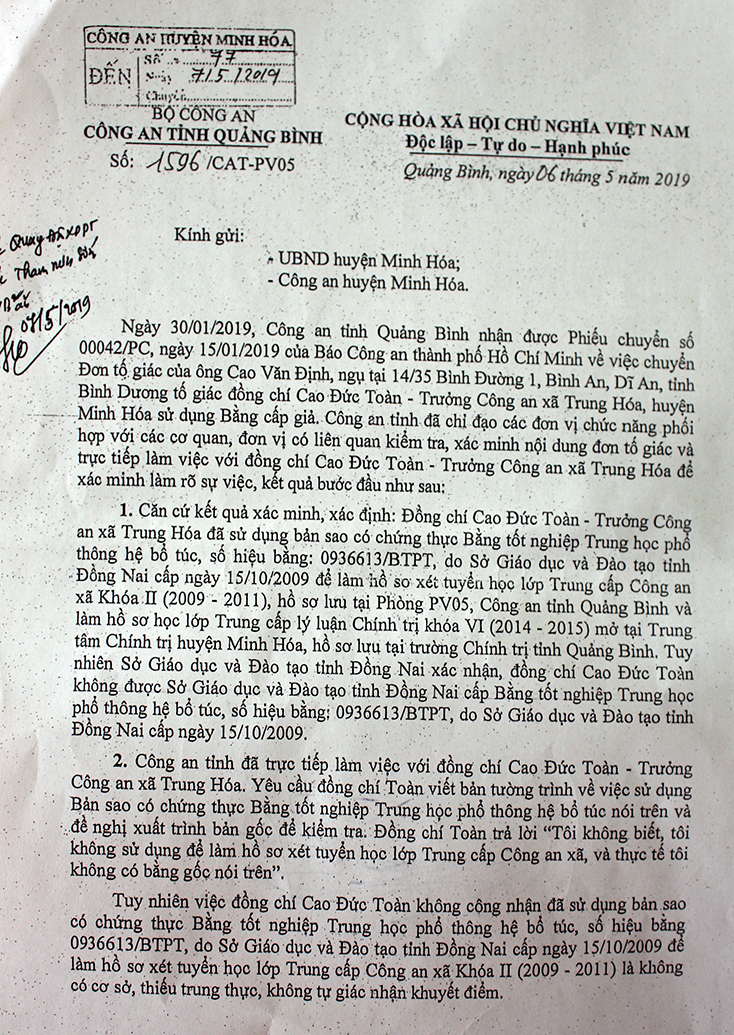 CÔNG AN HUYỆN MINH HÓA
ĐẾN
Số 77
Ngày 7/5/2019
Chuyển
BỘ CÔNG AN
CÔNG AN TỈNH QUẢNG BÌNH
Số: 1596/CAT-PV05
CỘNG HÒA XÃ HỘI CHỦ NGHĨA VIỆT NAM
Độc lập – Tự do – Hạnh phúc
Quảng Bình, ngày 06 tháng 5 năm 2019
07/5/2019
Kính gửi:
- UBND huyện Minh Hóa;
- Công an huyện Minh Hóa.
Ngày 30/01/2019, Công an tỉnh Quảng Bình nhận được Phiếu chuyển số
00042/PC, ngày 15/01/2019 của Báo Công an thành phố Hồ Chí Minh về việc chuyển
Đơn tố giác của ông Cao Văn Định, ngụ tại 14/35 Bình Đường 1, Bình An, Dĩ An, tỉnh
Bình Dương tố giác đồng chí Cao Đức Toàn - Trưởng Công an xã Trung Hóa, huyện
Minh Hóa sử dụng Bằng cấp giả. Công an tỉnh đã chỉ đạo các đơn vị chức năng phối
hợp với các cơ quan, đơn vị có liên quan kiểm tra, xác minh nội dung đơn tố giác và
trực tiếp làm việc với đồng chí Cao Đức Toàn - Trưởng Công an xã Trung Hóa để
xác minh làm rõ sự việc, kết quả bước đầu như sau:
1. Căn cứ kết quả xác minh, xác định: Đồng chí Cao Đức Toàn - Trưởng Công
an xã Trung Hóa đã sử dụng bản sao có chứng thực Bằng tốt nghiệp Trung học phổ
thông hệ bổ túc, số hiệu bằng: 0936613/BTPT, do Sở Giáo dục và Đào tạo tỉnh
Đồng Nai cấp ngày 15/10/2009 để làm hồ sơ xét tuyển học lớp Trung cấp Công an
xã Khóa II (2009 - 2011), hồ sơ lưu tại Phòng PV05, Công an tỉnh Quảng Bình và
làm hồ sơ học lớp Trung cấp lý luận Chính trị khóa VI (2014 - 2015) mở tại Trung
tâm Chính trị huyện Minh Hóa, hồ sơ lưu tại trường Chính trị tỉnh Quảng Bình. Tuy
nhiên Sở Giáo dục và Đào tạo tỉnh Đồng Nai xác nhận, đồng chí Cao Đức Toàn
không được Sở Giáo dục và Đào tạo tỉnh Đồng Nai cấp Bằng tốt nghiệp Trung học
phổ thông hệ bổ túc, số hiệu bằng: 0936613/BTPT, do Sở Giáo dục và Đào tạo tỉnh
Đồng Nai cấp ngày 15/10/2009.
2. Công an tỉnh đã trực tiếp làm việc với đồng chí Cao Đức Toàn - Trưởng
Công an xã Trung Hóa. Yêu cầu đồng chí Toàn viết bản tường trình về việc sử dụng
Bản sao có chứng thực Bằng tốt nghiệp Trung học phổ thông hệ bổ túc nói trên và
đề nghị xuất trình bản gốc để kiểm tra. Đồng chí Toàn trả lời “Tôi không biết, tôi
không sử dụng để làm hồ sơ xét tuyển học lớp Trung cấp Công an xã, và thực tế tôi
không có bằng gốc nói trên”.
Tuy nhiên việc đồng chí Cao Đức Toàn không công nhận đã sử dụng bản sao
có chứng thực Bằng tốt nghiệp Trung học phổ thông hệ bổ túc, số hiệu bằng
0936613/BTPT, do Sở Giáo dục và Đào tạo tỉnh Đồng Nai cấp ngày 15/10/2009 để
làm hồ sơ xét tuyển học lớp Trung cấp Công an xã Khóa II (2009 - 2011) là không
có cơ sở, thiếu trung thực, không tự giác nhận khuyết điểm.